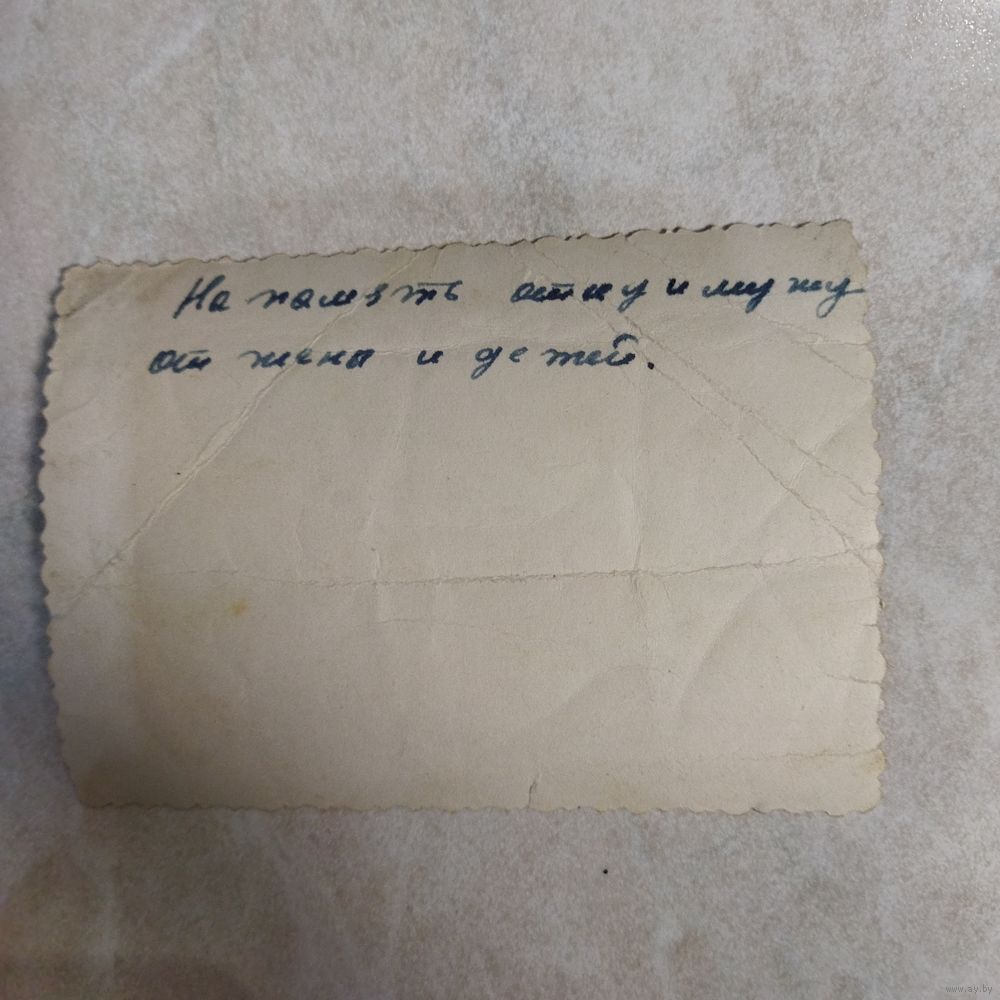 На память отцу и мужу
от жена и детей.
www.ay.by